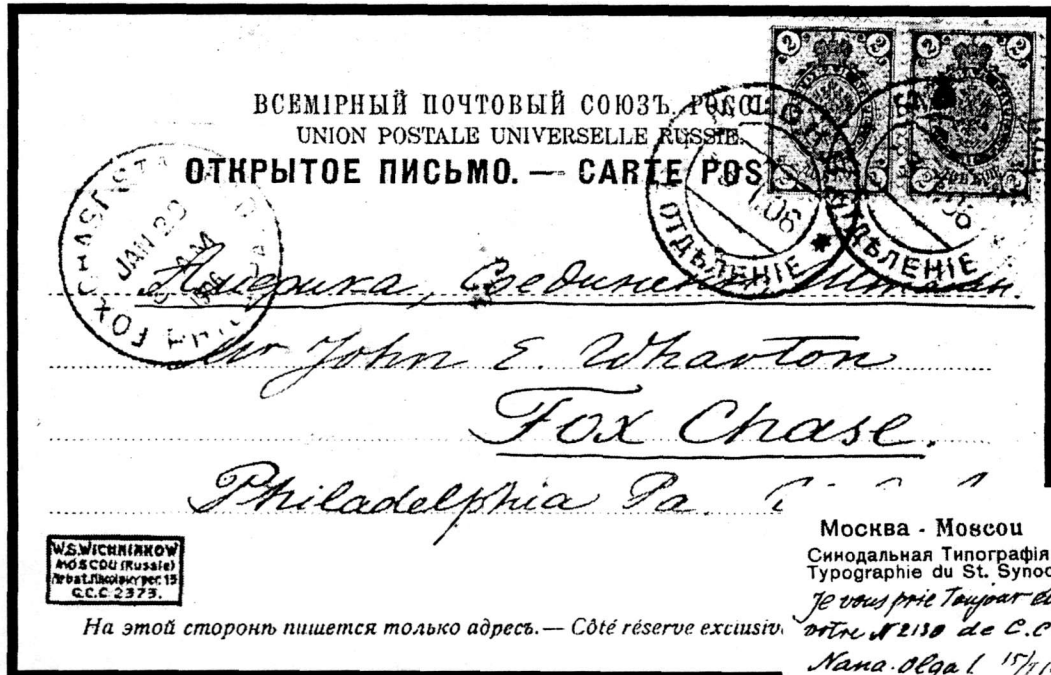 ВСЕМІРНЫЙ ПОЧТОВЫЙ СОЮЗЪ.
UNION POSTALE UNIVERSELLE RUSSIE.
ОТКРЫТОЕ ПИСЬМО. — CARTE POS
2 2 2 2
ОТДѢЛЕНІЕ
FOX CHASE STA
JAN 20
AM
Америка, Соединен. Штаты.
Mr John E. Wharton
Fox Chase.
Philadelphia Pa.
W.S. WICHNIAKOW
MOSCOU (Russie)
C.C.C 2373.
На этой сторонѣ пишется только адресъ. — Côté réservé exclusiv
Москва - Moscou
Синодальная Типографія
Typographie du St. Synod
Je vous prie Toujour
votre N 2130 de C.C